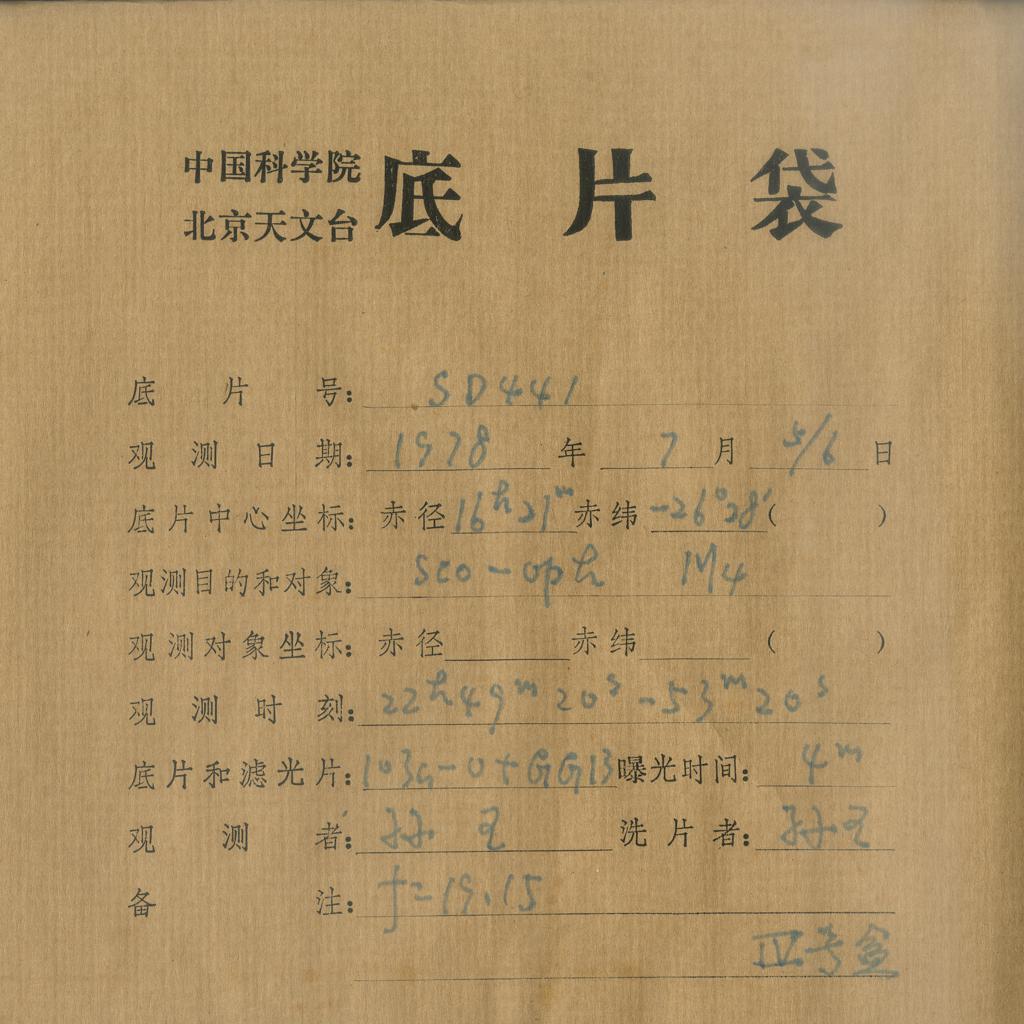 中国科学院
北京天文台 底片袋
底片号: SD441
观测日期: 1978年 7月 5/6日
底片中心坐标: 赤径 16h21m 赤纬 -26°28′ ( )
观测目的和对象: sco-oph M4
观测对象坐标: 赤径 赤纬 ( )
观测时刻: 22h49m20s-53m20s
底片和滤光片: 103a-O+GG13 曝光时间: 4m
观测者: 孙 洗片者: 孙
备注: f=19.15
IV号盒